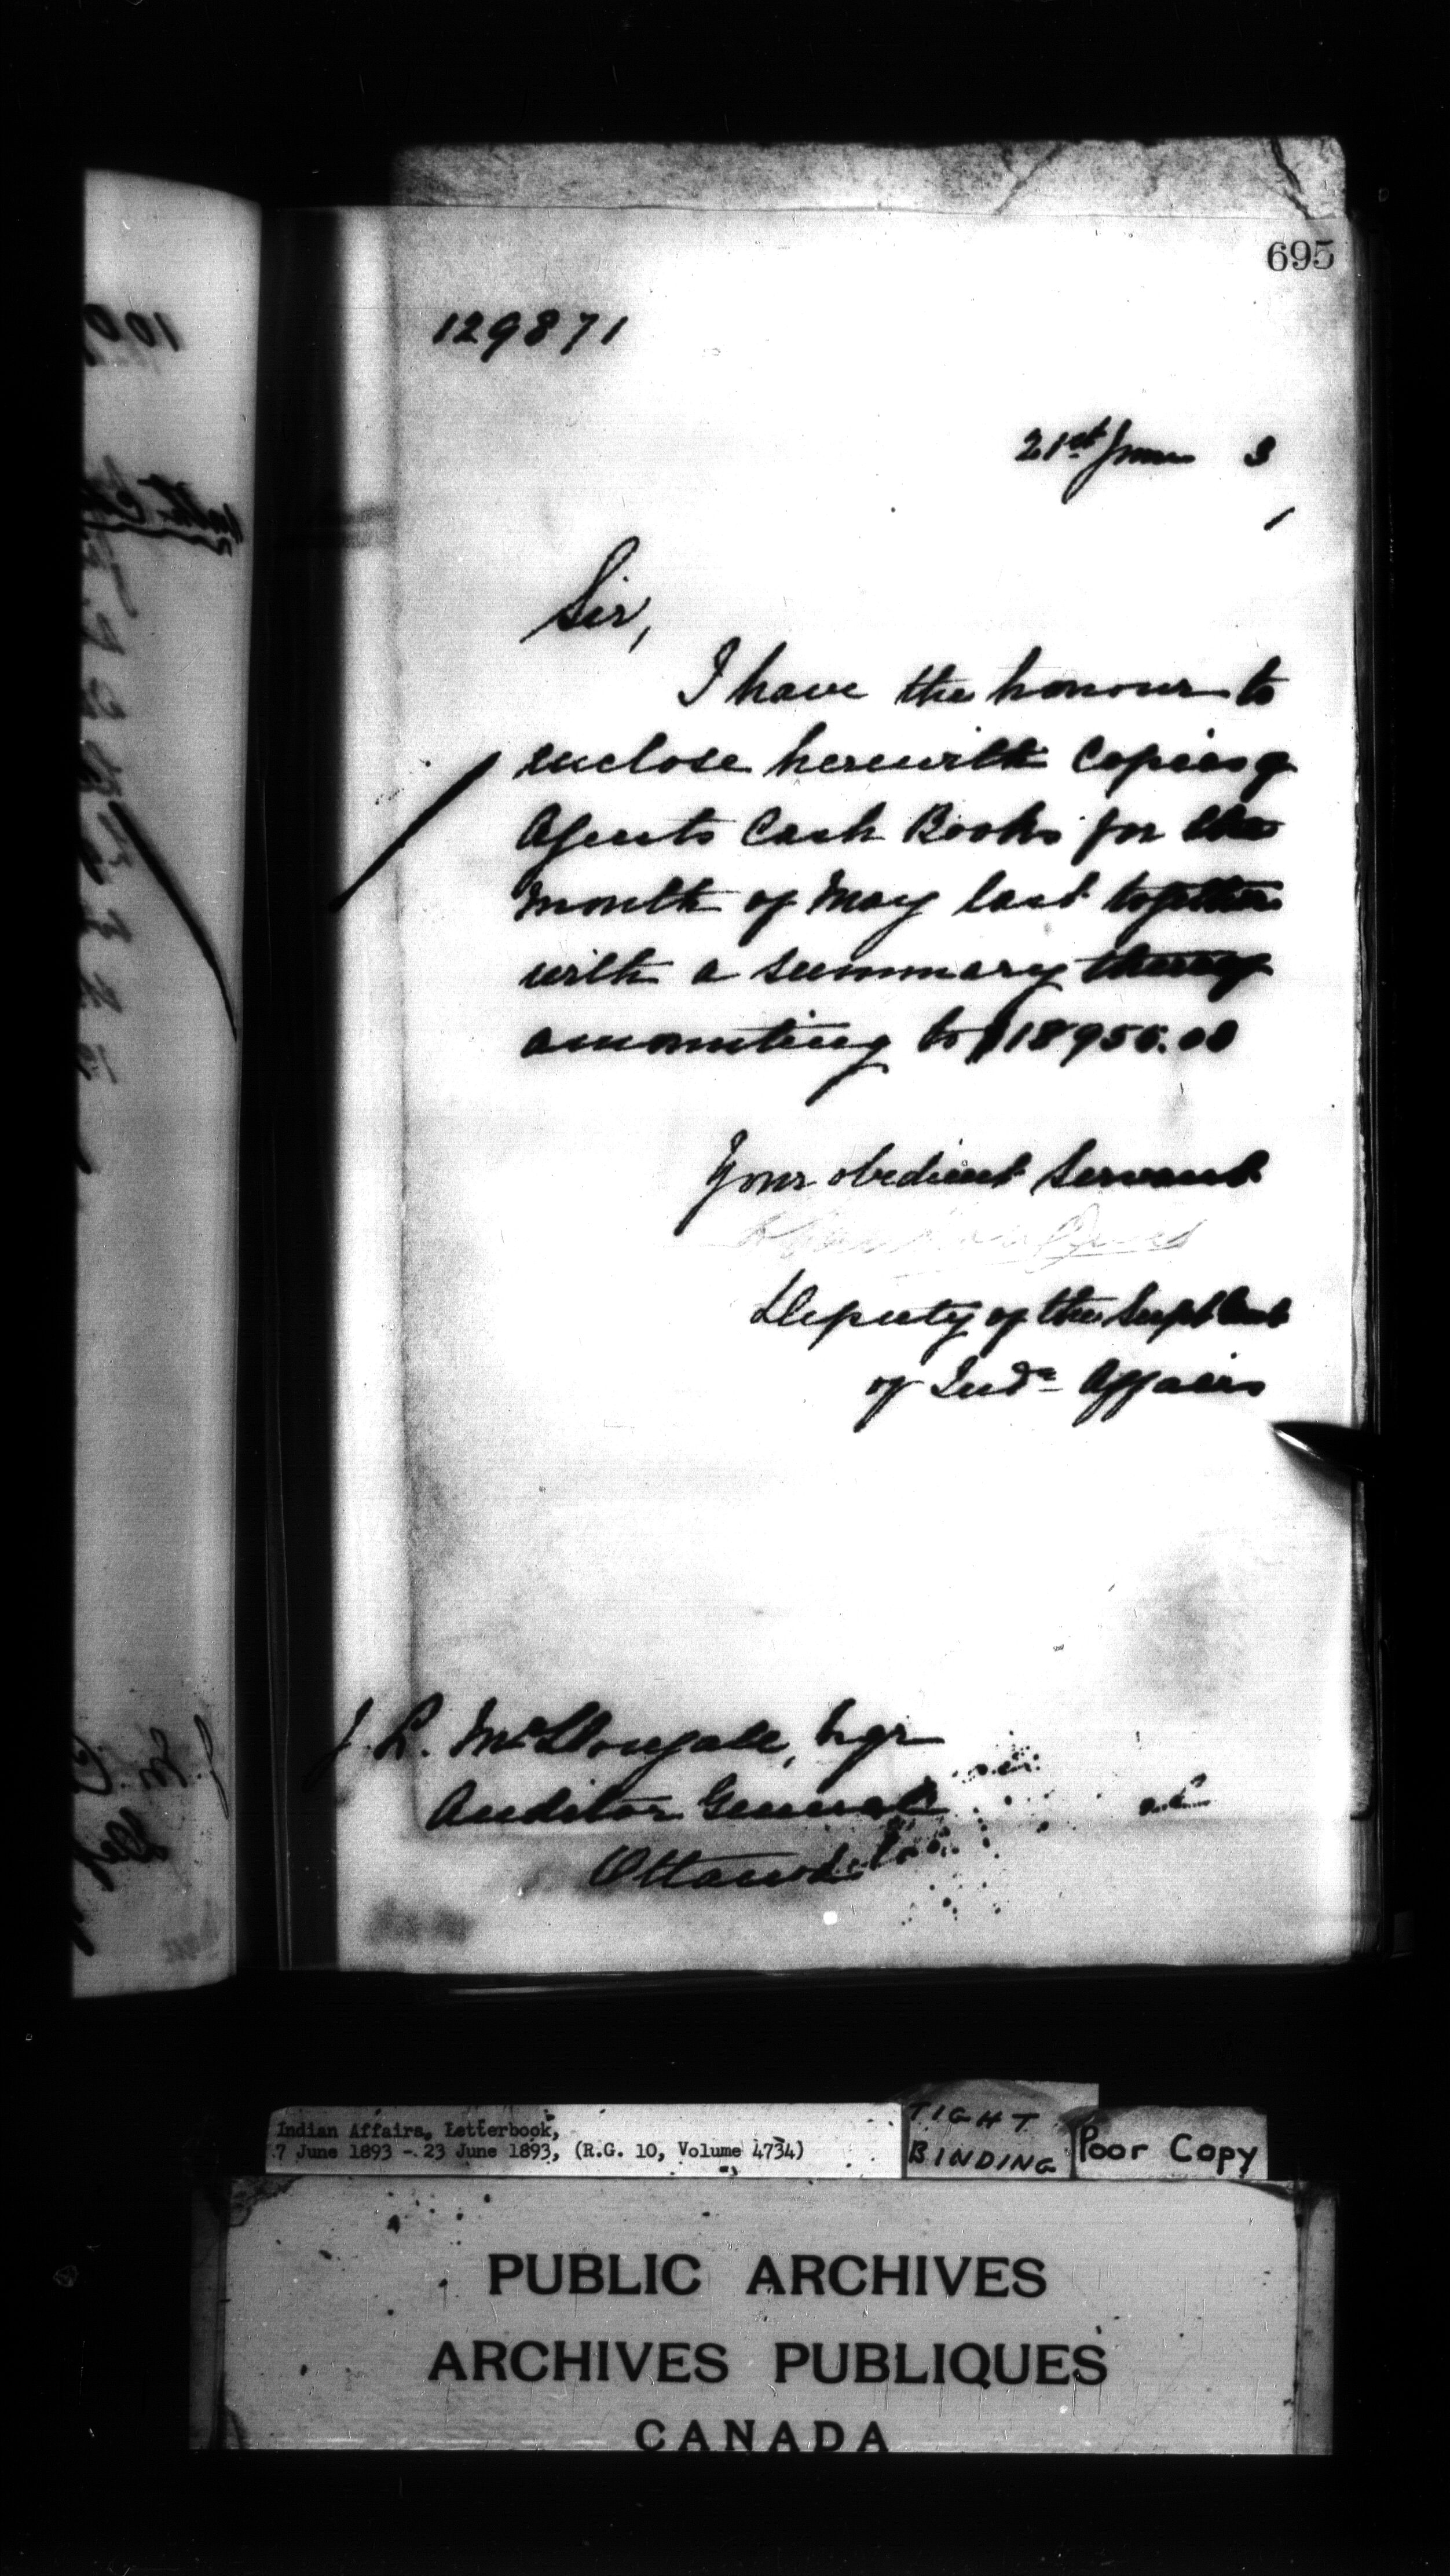 695
129871
21st June 3
Sir,
I have the honour to
enclose herewith Copies of
Agents Cash Books for the
month of May last together
with a summary thereof
amounting to $18956.00
Your obedient Servant
Deputy of the Supt Genl
of Indn Affairs
J. L. McDougall, Esqr
Auditor General
Ottawa
Indian Affairs, Letterbook,
7 June 1893 - 23 June 1893, (R.G. 10, Volume 4734)
TIGHT
BINDING
Poor Copy
PUBLIC ARCHIVES
ARCHIVES PUBLIQUES
CANADA